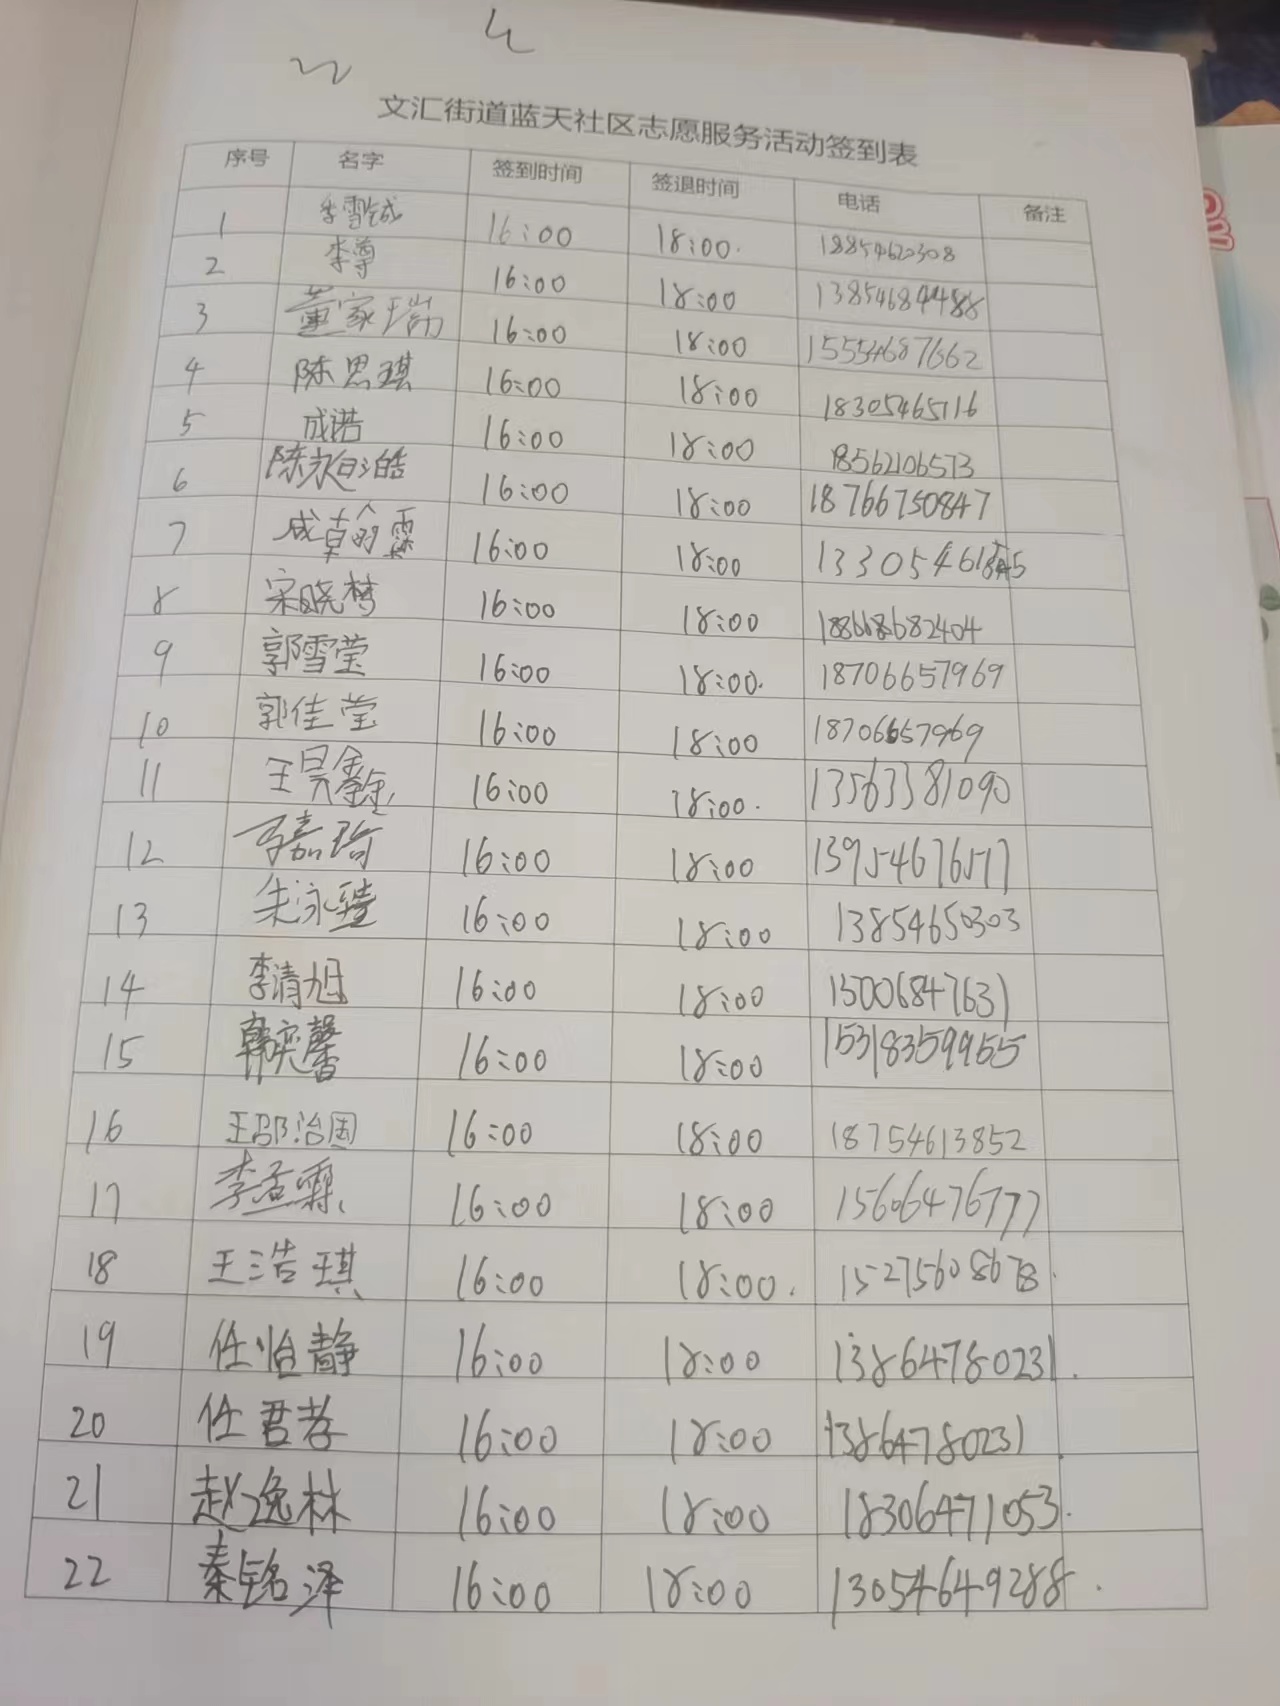 文汇街道蓝天社区志愿服务活动签到表
序号 名字 签到时间 签退时间 电话 备注
1 李雪铖 16:00 18:00. 18854620308
2 李尊 16:00 18:00 13854684488
3 董家瑞 16:00 18:00 15554687662
4 陈思琪 16:00 18:00 18305465116
5 成诺 16:00 18:00 18562106573
6 陈永皓 16:00 18:00 18766750847
7 成翰霖 16:00 18:00
8 宋晓梦 16:00 18:00 18866682404
9 郭雪莹 16:00 18:00. 18706657969
10 郭佳莹 16:00 18:00 18706657969
11 王昊鑫 16:00 18:00. 13563381090
12 嘉琦 16:00 18:00 13954676517
13 朱泳 16:00 18:00 13854650303
14 李清旭 16:00 18:00 15006847631
15 韩奕馨 16:00 18:00 15318359955
16 王邵治国 16:00 18:00 18754613852
17 李孟霖 16:00 18:00 15606476777
18 王浩琪 16:00 18:00. 15275608678.
19 任怡静 16:00 18:00 13864780231.
20 任君孝 16:00 18:00 13864780231
21 赵逸林 16:00 18:00 18306471053.
22 秦铭泽 16:00 18:00 13054649288.